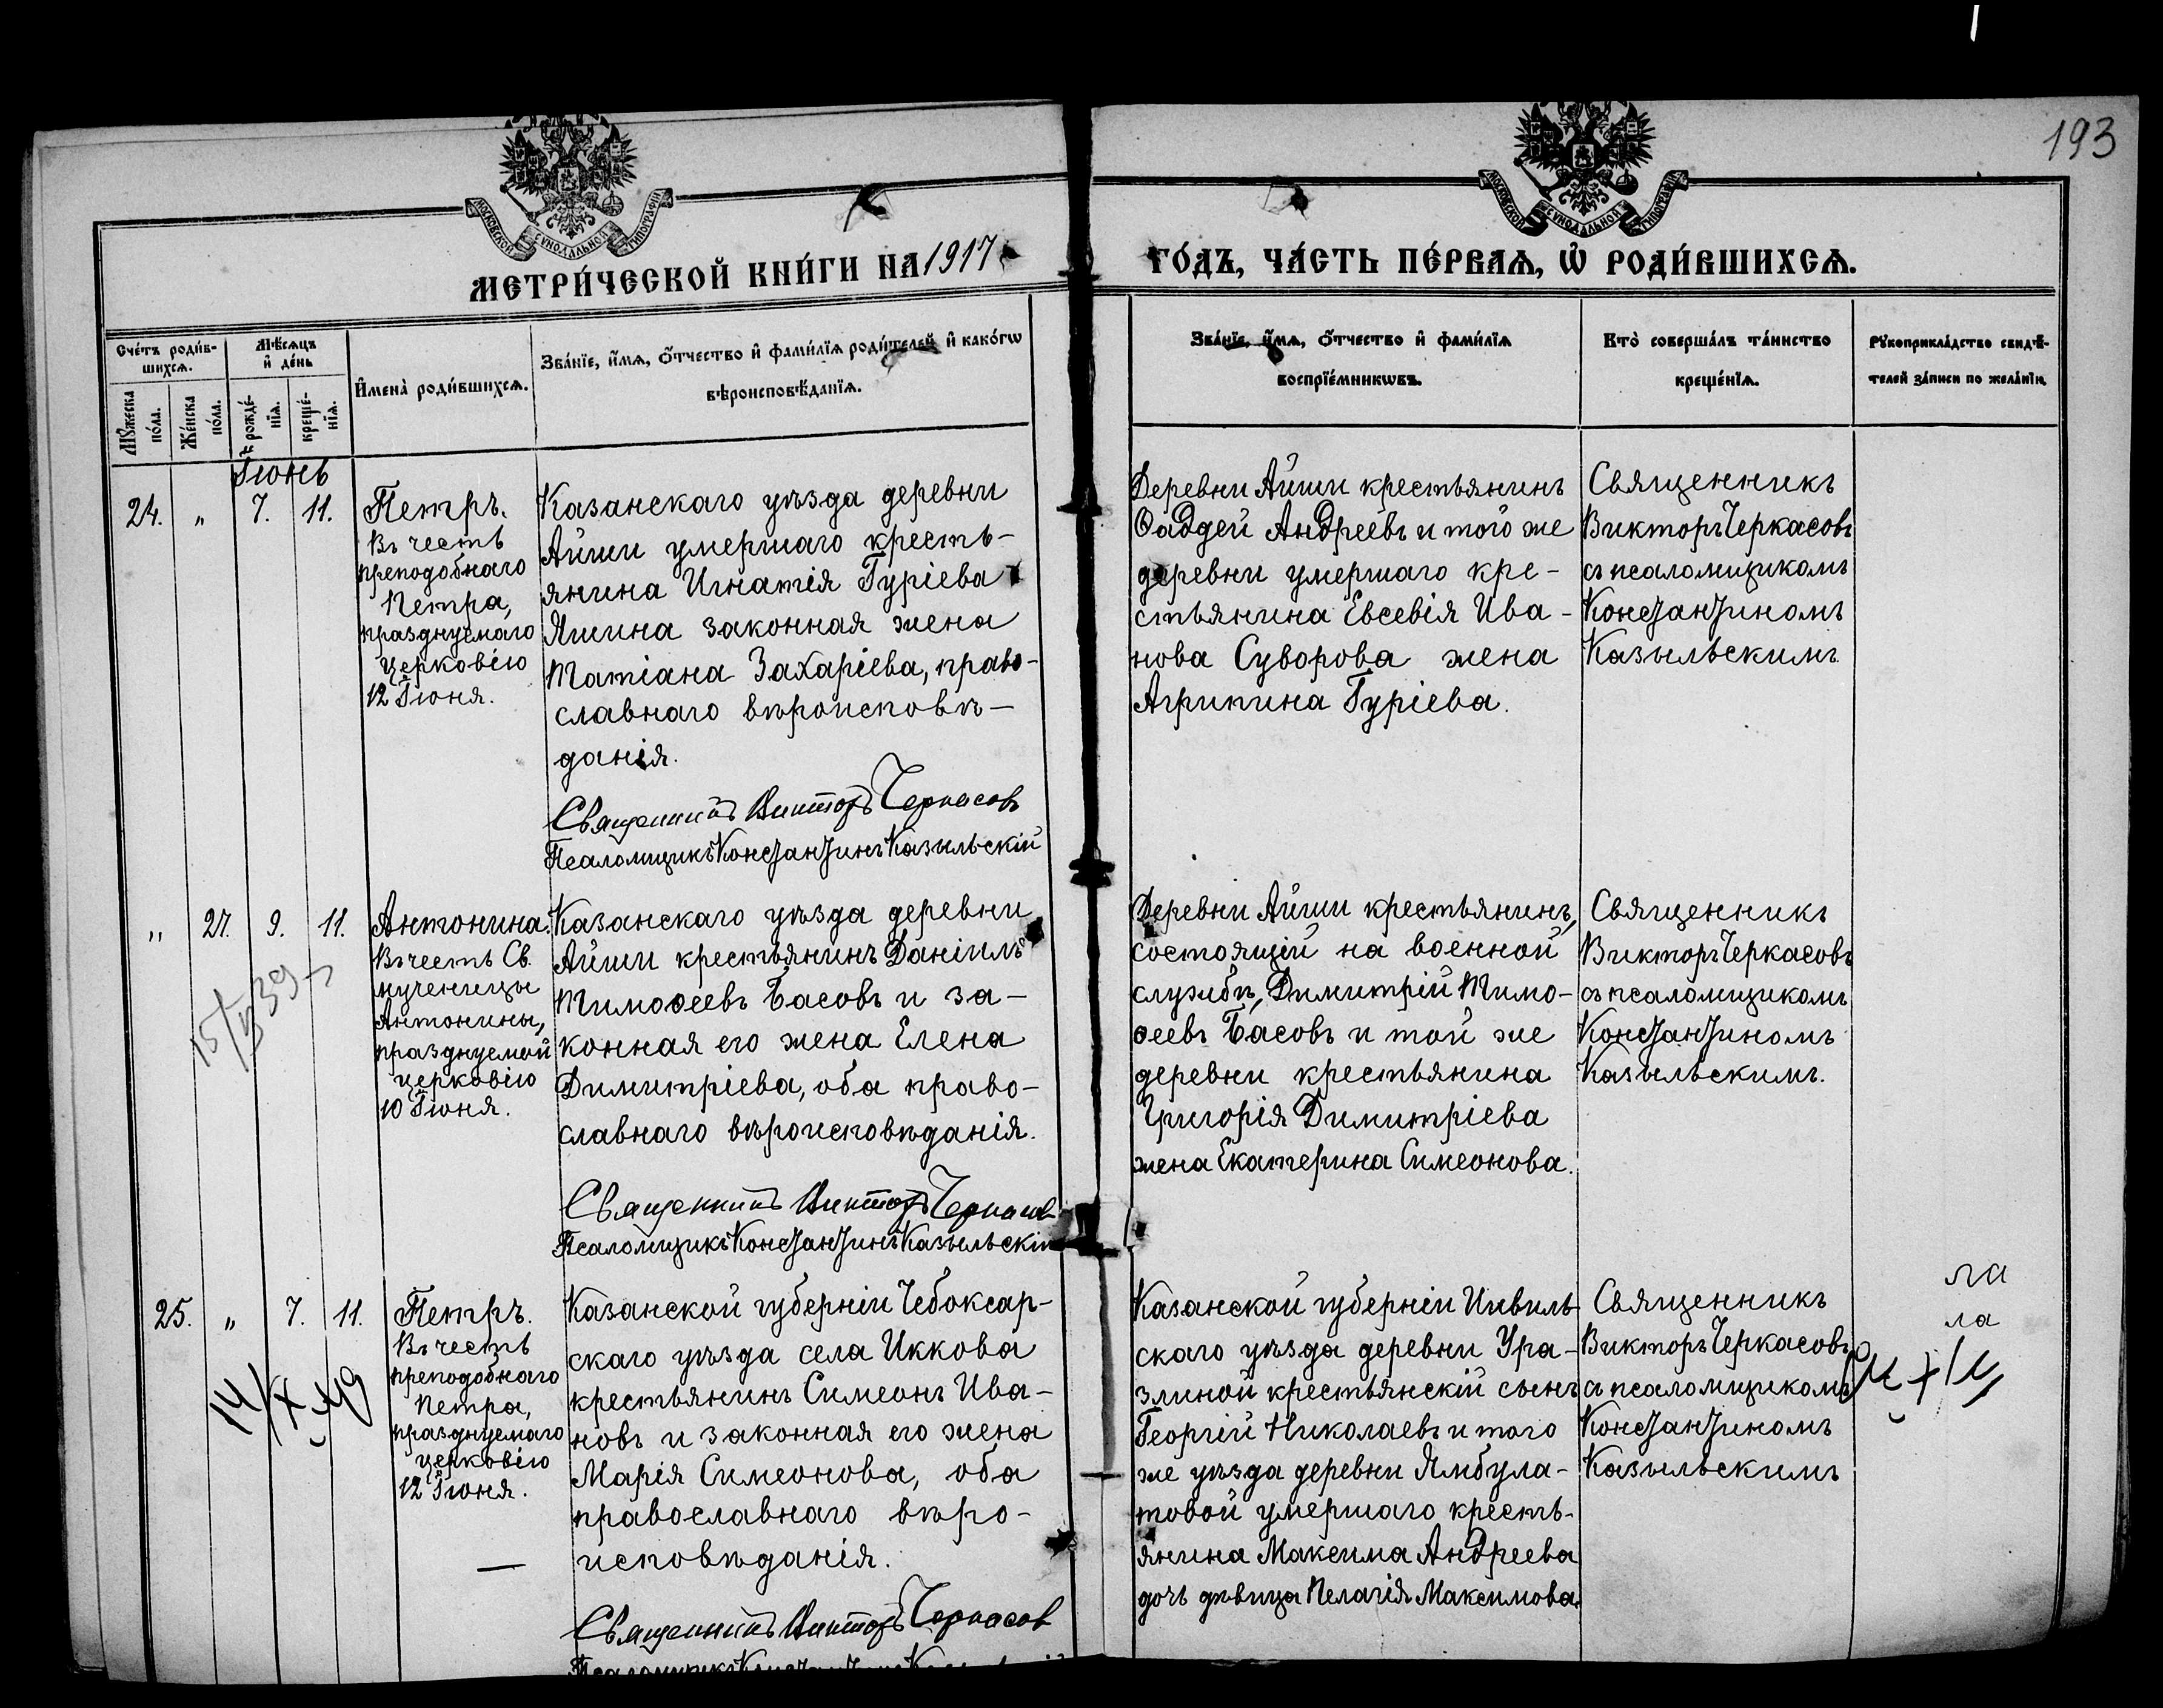 193
МОСКОВСКОЙ СѴНОДАЛЬНОЙ ТИПОГРАФІИ
МОСКОВСКОЙ СѴНОДАЛЬНОЙ ТИПОГРАФІИ
МЕТРИ́ЧЕСКОЙ КНИ́ГИ НА 1917
ГО́ДЪ, ЧА́СТЬ ПЕ́РВАѦ, Ѡ҆ РОДИ́ВШИХСѦ.
Сче́тъ роди́в-
шихсѧ.
Мꙋ́жеска
по́ла.
Же́нска
по́ла.
Мѣ́сѧцъ
и҆ де́нь
рожде́-
нїѧ.
креще́-
нїѧ.
И҆мена̀ роди́вшихсѧ.
Зва́нїе, и҆́мѧ, ѻ҆́тчество и҆ фамі́лїѧ роди́телей и҆ како́гѡ
вѣроисповѣ́данїѧ.
Зва́нїе, и҆́мѧ, ѻ҆́тчество и҆ фамі́лїѧ
воспрїе́мникѡвъ.
Кто̀ соверша́лъ та́инство
креще́нїѧ.
Рꙋкоприкла́дство свидѣ́-
телей за́писи по жела́нїю.
Іюнь
24. " 7. 11.
Петръ.
Въ честь
преподобнаго
Петра,
празднуемаго
церковію
12 Іюня.
Казанскаго уѣзда деревни
Айши умершаго кресть-
янина Игнатія Гуріева
Яшина законная жена
Татіана Захаріева, право-
славнаго вѣроисповѣ-
данія.
Священникъ Викторъ Черкасовъ
Псаломщикъ Константинъ Казыльскій
Деревни Айши крестьянинъ
Ѳаддей Андреевъ и той же
деревни умершаго кре-
стьянина Евсевія Ива-
нова Суворова жена
Агрипина Гуріева.
Священникъ
Викторъ Черкасовъ
съ псаломщикомъ
Константиномъ
Казыльскимъ.
" 27. 9. 11.
Антонина.
Въ честь Св.
мученицы
Антонины,
празднуемой
церковію
10 Іюня.
Казанскаго уѣзда деревни
Айши крестьянинъ Даніилъ
Тимоѳеевъ Басовъ и за-
конная его жена Елена
Димитріева, оба право-
славнаго вѣроисповѣданія.
Священникъ Викторъ Черкасовъ
Псаломщикъ Константинъ Казыльскій
Деревни Айши крестьянинъ,
состоящій на военной
службѣ, Димитрій Тимо-
ѳеевъ Басовъ и той же
деревни крестьянина
Григорія Димитріева
жена Екатерина Симеонова.
Священникъ
Викторъ Черкасовъ
съ псаломщикомъ
Константиномъ
Казыльскимъ.
25. " 7. 11.
Петръ.
Въ честь
преподобнаго
Петра,
празднуемаго
церковію
12 Іюня.
Казанской губерніи Чебоксар-
скаго уѣзда села Иккова
крестьянинъ Симеонъ Ива-
новъ и законная его жена
Марія Симеонова, оба
православнаго вѣро-
исповѣданія.
Священникъ Викторъ Черкасов
Казанской губерніи Цивиль-
скаго уѣзда деревни Ура-
злиной крестьянскій сынъ
Георгій Николаевъ и того
же уѣзда деревни Ямбула-
товой умершаго кресть-
янина Максима Андреева
дочь дѣвица Пелагія Максимова.
Священникъ
Викторъ Черкасовъ
съ псаломщикомъ
Константиномъ
Казыльскимъ
ла
ла